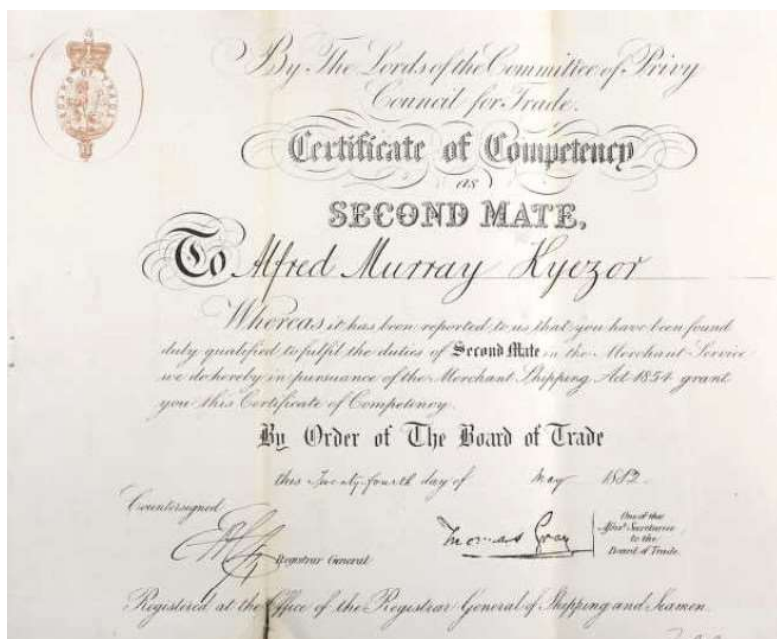 By The Lords of the Committee of Privy
Council for Trade.
Certificate of Competency
as
SECOND MATE,
To Alfred Murray Kyezor
Whereas it has been reported to us that you have been found
duly qualified to fulfil the duties of Second Mate in the Merchant Service
we do hereby in pursuance of the Merchant Shipping Act 1854 grant
you this Certificate of Competency.
By Order of The Board of Trade
this Twenty fourth day of May 1882.
Countersigned
Registrar General
Thomas Gray
One of the
Assist Secretaries
to the
Board of Trade.
Registered at the Office of the Registrar General of Shipping and Seamen.